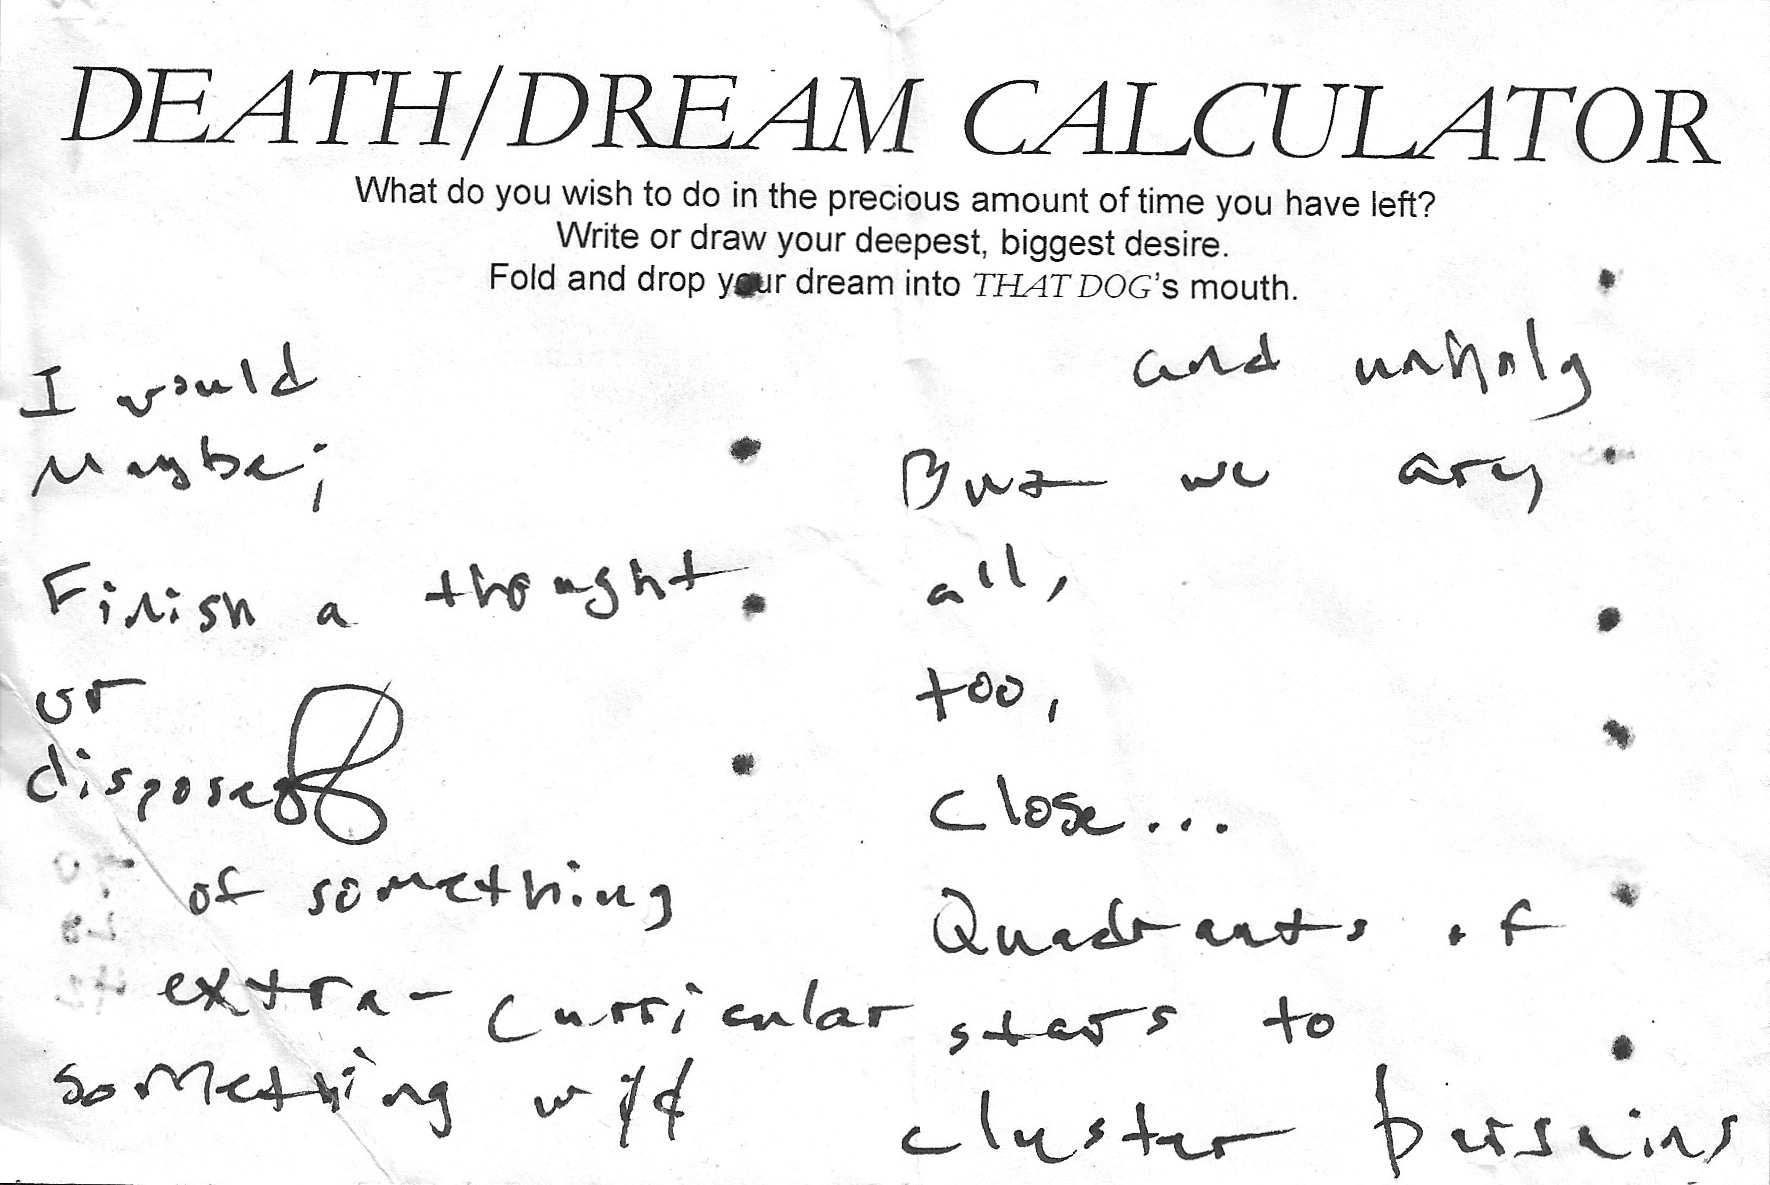 DEATH/DREAM CALCULATOR
What do you wish to do in the precious amount of time you have left?
Write or draw your deepest, biggest desire.
Fold and drop your dream into THAT DOG's mouth.
I would
Maybe;
Finish a thought
or
dispose
of something
extra-curricular
something
and unholy
But we are
all,
too,
close...
Quadrants of
stars to
cluster